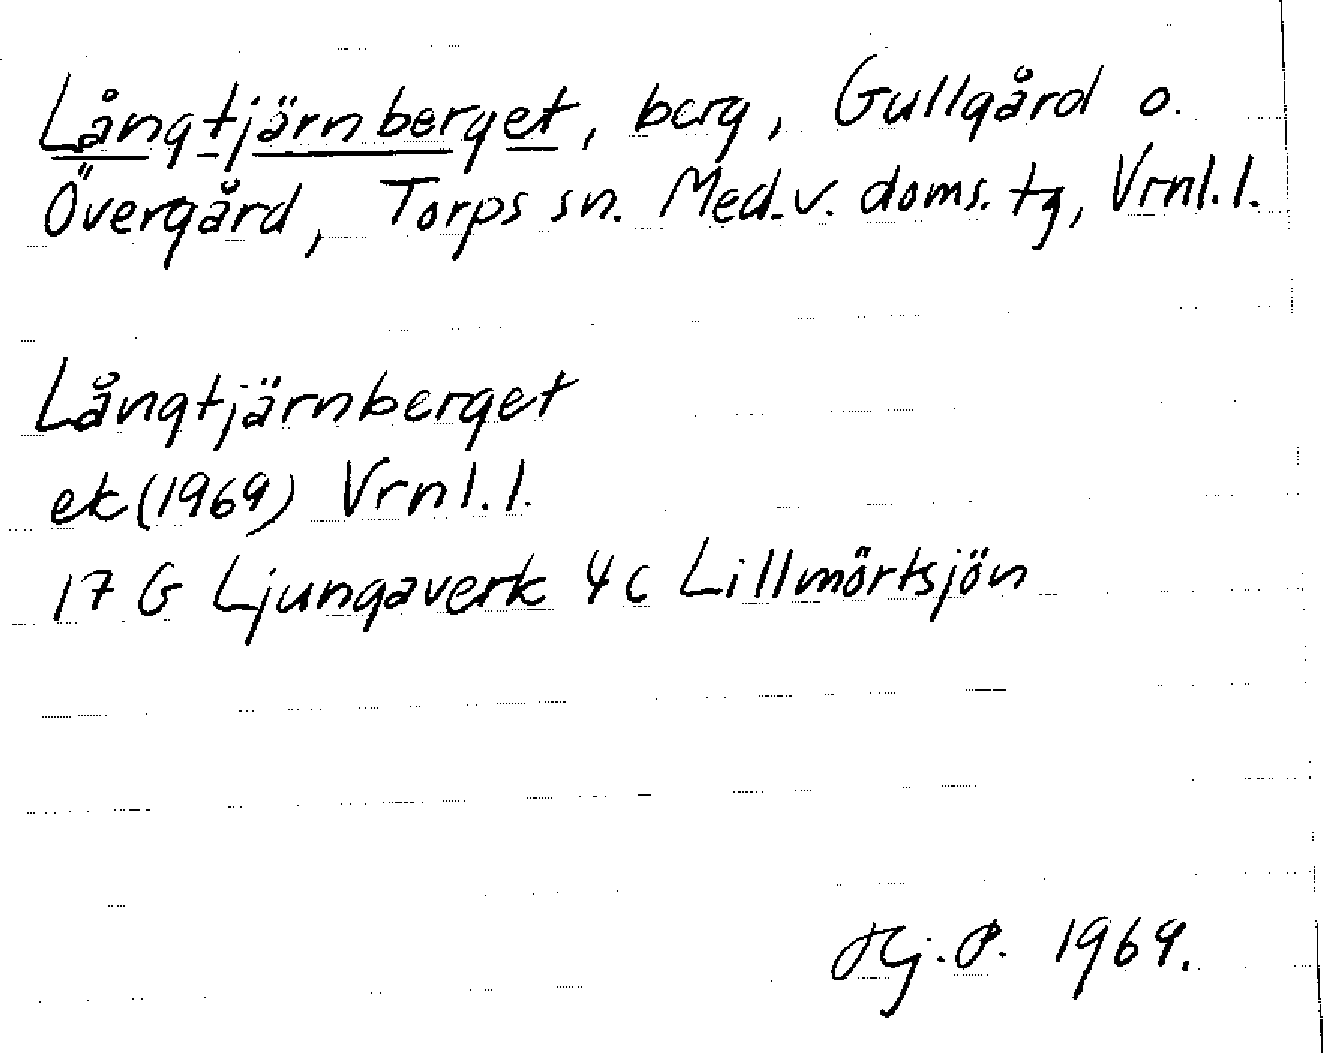 Långtjärnberget, berg, Gullgård o.
Övergård, Torps sn. Med.v. doms. tg, Vrnl.l.
Långtjärnberget
ek (1969) Vrnl.l.
17 G Ljungaverk 4c Lillmörtsjön
Hj.P. 1969.